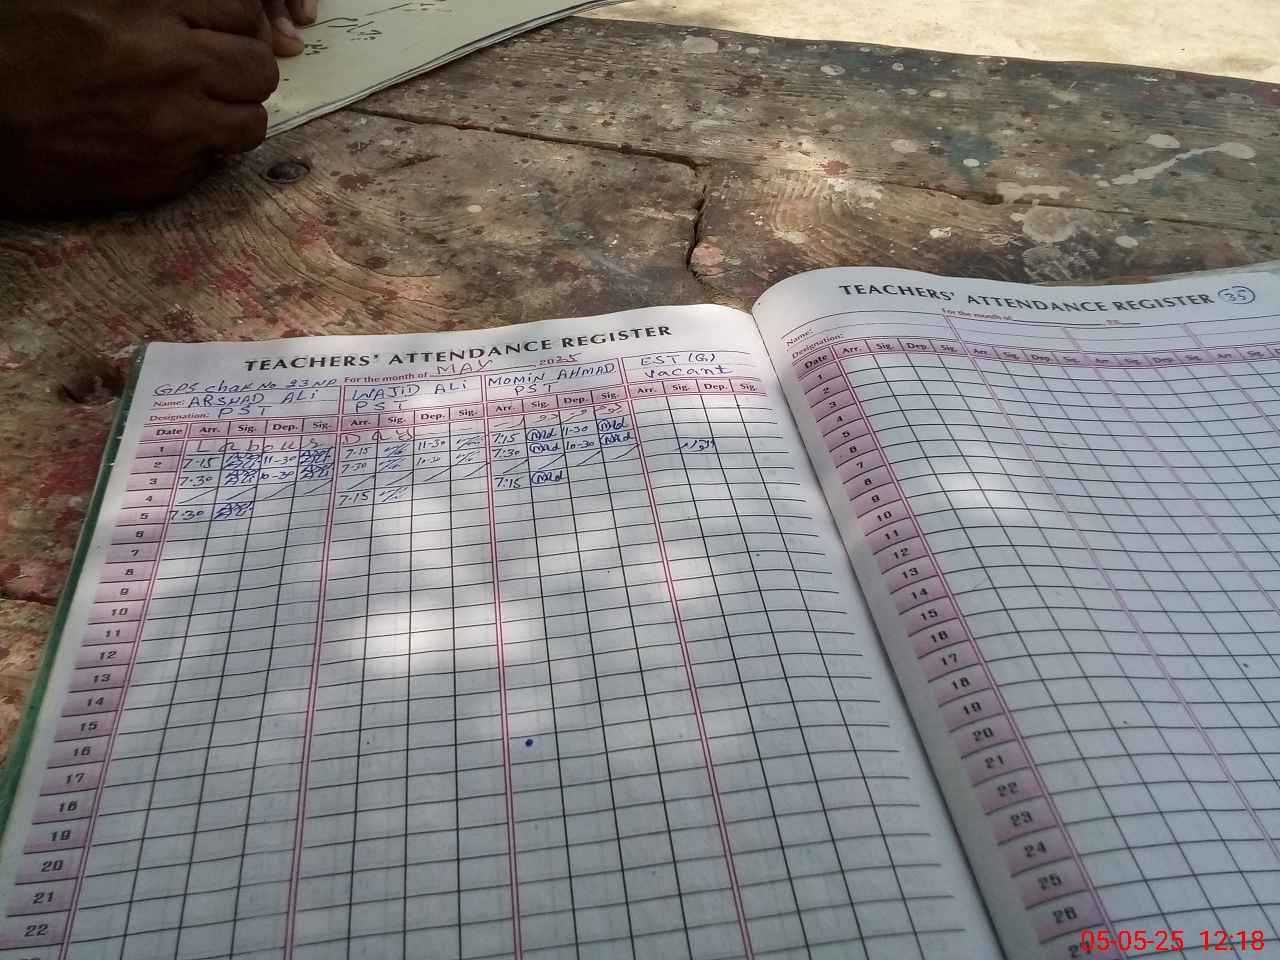 TEACHERS' ATTENDANCE REGISTER
GPS chak No 23 NP For the month of MAY 2025
Name: ARSHAD ALi WAJiD ALi MOMiN AHMAD EST (G)
Designation: PST PST PST vacant
Date Arr. Sig. Dep. Sig. Arr. Sig. Dep. Sig. Arr. Sig. Dep. Sig. Arr. Sig. Dep. Sig.
1 Labour's Day
2 7:15 11-30 7-15 11-30 7:15 11-30
3 7-30 10-30 7-30 10-30 7:30 10-30
4
5 7:30 7-15 7:15
6
7
8
9
10
11
12
13
14
15
16
17
18
19
20
21
22
TEACHERS' ATTENDANCE REGISTER 35
For the month of 20
Name:
Designation:
Date Arr. Sig. Dep. Sig. Arr. Sig. Dep. Sig. Arr. Sig. Dep. Sig.
1
2
3
4
5
6
7
8
9
10
11
12
13
14
15
16
17
18
19
20
21
22
23
24
25
26
27
05-05-25 12:18